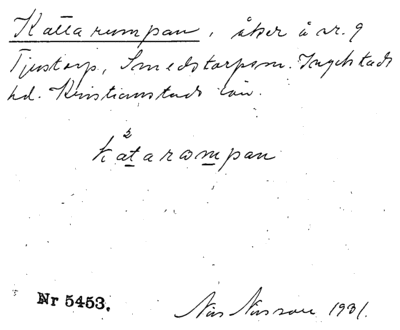 Kattarumpan, åker å nr. 9
Tjustorp, Smedstorps sn. Ingelstads
hd. Kristianstads län.
kátarompan
Nr 5453.
Nils Nilsson 1931.